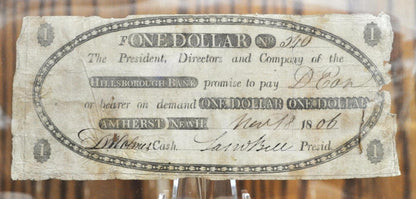 1 FONE DOLLAR No 340 1
The President, Directors and Company of the
HILLSBOROUGH BANK promise to pay D Eon
or bearer on demand ONE DOLLAR ONE DOLLAR
AMHERST NEWH. Nov 18 1806
Cash. Saml Bell Presid.
1 1